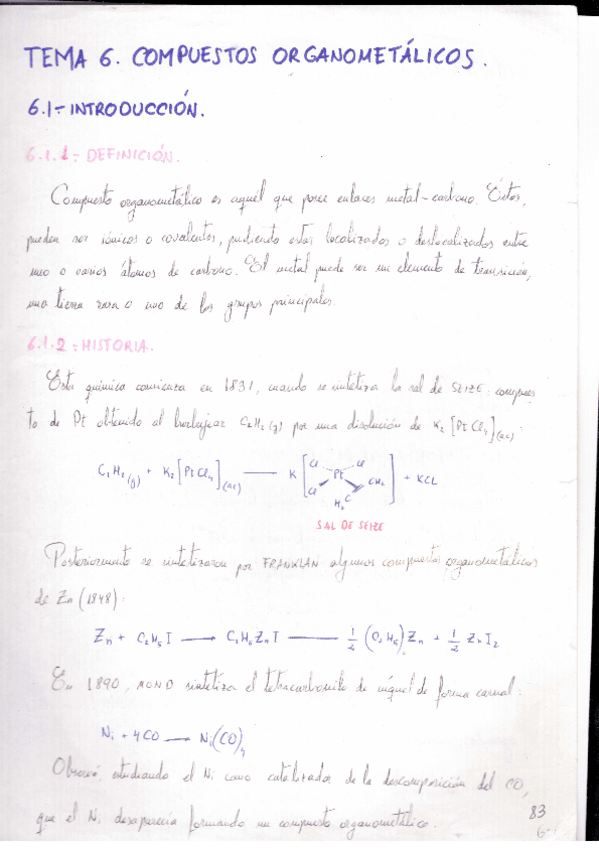 TEMA 6. COMPUESTOS ORGANOMETÁLICOS.
6.1.- INTRODUCCIÓN.
6.1.1.- DEFINICIÓN.
Compuesto organometálico es aquél que posee enlaces metal-carbono. Éstos,
pueden ser iónicos o covalentes, pudiendo estar localizados o deslocalizados entre
uno o varios átomos de carbono. El metal puede ser un elemento de transición,
una tierra rara o uno de los grupos principales.
6.1.2.- HISTORIA.
Esta química comienza en 1831, cuando se sintetiza la sal de SEIZE: compues
to de Pt obtenido al burbujear C2H2(g) por una disolución de K2[PtCl4](ac).
C2H2(g) + K2[PtCl4](ac) —— K [Cl Cl Pt Cl CH2 H2C] + KCL
SAL DE SEIZE
Posteriormente se sintetizaron por FRANKLAN algunos compuestos organometálicos
de Zn (1848).
Zn + C2H5I → C2H5ZnI —— 1/2 (C2H5)2Zn + 1/2 ZnI2
En 1890, MOND sintetiza el tetracarbonilo de níquel de forma casual:
Ni + 4CO → Ni(CO)4
Observó, estudiando el Ni como catalizador de la descomposición del CO,
que el Ni desaparecía formando un compuesto organometálico.
83